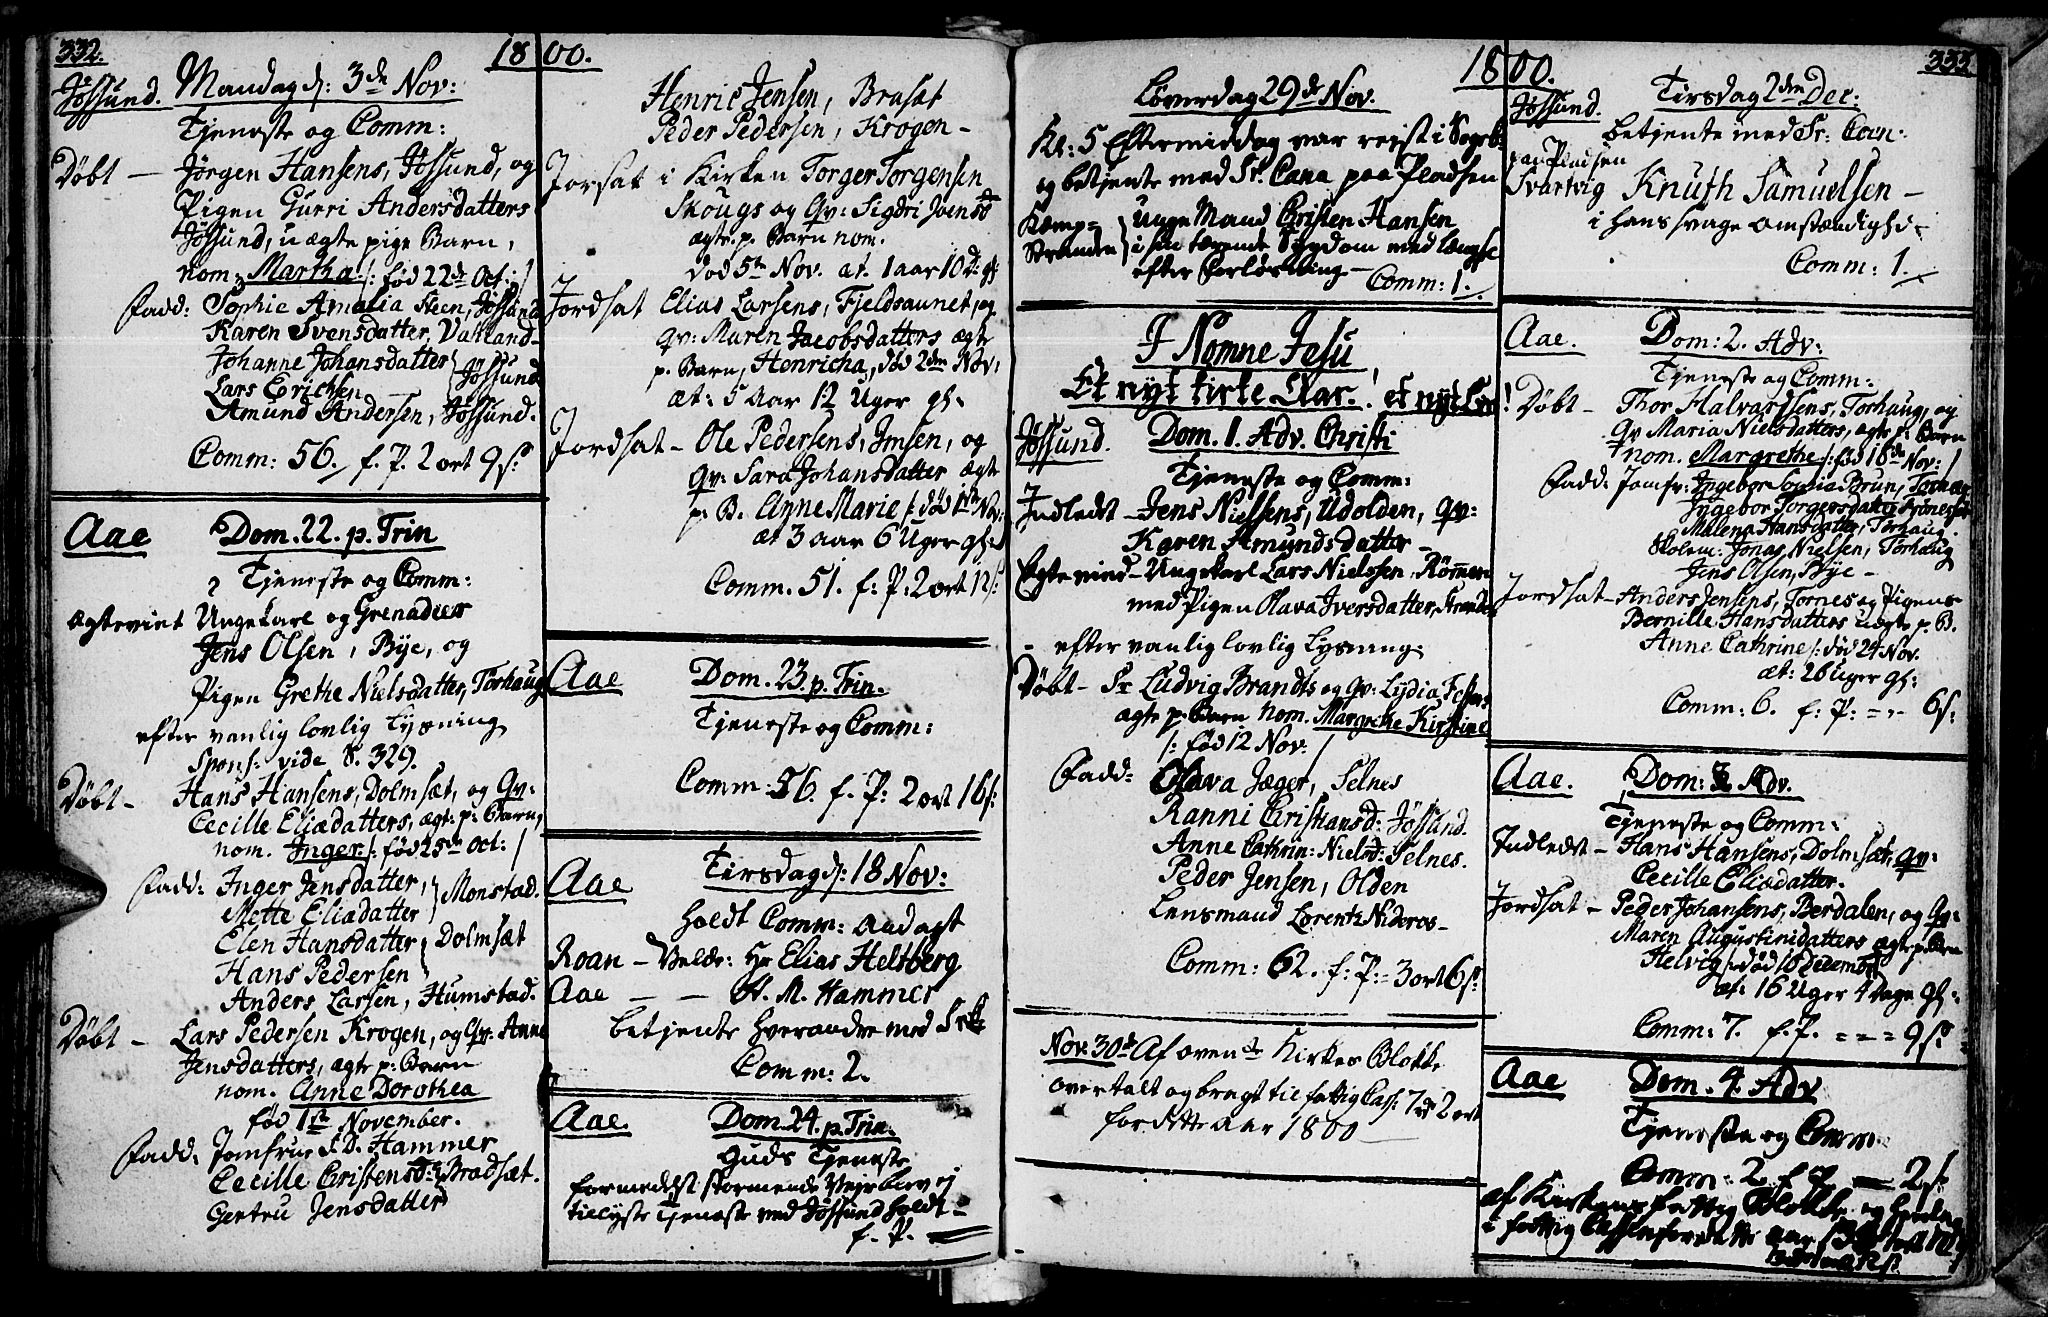 332.
1800.
Jössund. Mandag d: 3de Nov:
Tjeneste og Comm:
Döbt - Jörgen Hansens, Jössund, og
Pigen Gurri Andersdatters
Jössund, uægte pige Barn,
nom: Martha /: fød 22de Oct: /
Fadd: Sophie Amalia Steen, Jössund
Karen Svensdatter, Valland
Johanne Johansdatter } Jössund
Lars Erichsen
Amund Andersen, Jössund.
Comm: 56. f. P. 2 ort 9 s:
Aae Dom. 22. p. Trin
Tjeneste og Comm:
Ægteviet Ungekarl og Grenadeer
Jens Olsen, Bye, og
Pigen Grethe Nielsdatter, Torhaug
efter vanlig lovlig Lysning
Spons: vide S. 329.
Döbt - Hans Hansens, Dolmsæt, og Qv:
Cecille Eliædatters, ægt: p: Barn,
nom. Inger /: fød 25de Oct: /
Fadd: Inger Jensdatter, } Monstad.
Mette Eliædatter
Elen Hansdatter } Dolmsæt
Hans Pedersen
Anders Larsen, Humstad.
Döbt - Lars Pedersen Krogen, og Qv: Anne
Jensdatters, ægte p: Barn
nom. Anne Dorothea
fød 1ste November.
Fadd: Jomfrue J. D. Hammer
Cecille Cristensd: } Bradsæt.
Gertru Jensdatter
Henric Jensen, Brasæt
Peder Pedersen, Krogen -
Jorsat i Kirken Torger Torgersen
Skougs og Qv: Sigdri Joensd
ægte p. Barn nom.
död 5te Nov. æt. 1 aar 10 D: gl:
Jordsat Elias Larsens, Fjeldsaunet, og
qv: Maren Jacobsdatters ægte
p. Barn, Henricha, död 2den Nov:
æt: 5 Aar 12 Uger gl:
Jordsat - Ole Pedersens, Imsen, og
qv: Sara Johansdatter ægte
p. B. Anne Marie /: död 1ste Nov:
æt 3 aar 6 Uger gl:
Comm. 51. f: P: 2 ort 12 s:
Aae Dom. 23 p. Trin.
Tjeneste og Comm:
Comm: 56. f. P: 2 ort 16 s:
Aae Tirsdag d: 18 Nov:
holdt Comm: Andagt
Roan - Velær: Hr Elias Heltberg
Aae - - A. M. Hammer
betjente hverandre med
Comm: 2.
Aae. Dom. 24. p. Trin.
Guds Tjeneste
formedelst stormende Veyr blev ej
tillyste Tjeneste ved Jössund holdt -
f. P. -
1800.
333
Löverdag 29de Nov.
Kl: 5 Eftermiddag var rejst i
og betjente med Sr: Cæna paa Pladsen
Kæmp= Stranden } unge Mand Cristen Hansen
i sin tærende Sygdom med længsel
efter Forlösning -
Comm: 1.
I Nomne Jesu
Et nyt kirke Aar! et nyt
Jössund. Dom. 1. Adv. Christi
Tjeneste og Comm:
Indledt - Jens Nielsens, Udolden, qv:
Karen Amundsdatter -
Ægtevied - Ungekarl Lars Nielssen, Römmen
med Pigen Olava Iversdatter, Stranden
- efter vanlig lovlig Lysning.
Döbt - Sr Ludvig Brandts og qv: Lydia
ægte p: Barn nom. Margrethe Kirstine
/: fød 12 Nov: /
Fadd: Olava Jæger, Selnes
Ranni Cristiansd: Jössund.
Anne Cathrin: Nielsd: Selnes.
Peder Jensen, Olden
Lensmand Lorentz Nideros -
Comm: 62. f: P: = 3 ort 6 s:
Nov. 30de Af oven Kirkes Blokke
overtalt og bragt til fattig Cass: 7 2 ort
for dette Aar 1800
Tirsdag 2den Dec:
Jössund.
betjente med Sr: Cæn:
paa Pladsen
Svartvig Knuth Samuelsen -
i hans svage omstændighe -
Comm: 1.
Aae. Dom: 2. Adv:
Tjeneste og Comm:
Döbt - Thor Halvarssens, Torhaug, og
qv Maria Nielsdatters, ægte p: Barn
nom. Margrethe /: fød 18de Nov: /
Fadd: Jomfr: Ingebor Sophia Brun, Torhaug
Ingebor Torgersdatter
Malena Hansdatter, Torhaug.
Skolem: Jonas Nielsen, Torhaug
Jens Olsen, Bye -
Jordsat - Anders Jensens, Tornes og Pigens
Bernille Hansdatters uægte p. B.
Anne Cathrine /: död 24 Nov.
æt: 26 uger gl:
Comm: 6. f: P: = = - 6 s:
Aae. Dom: 3 Adv.
Tjeneste og Comm:
Indledt - Hans Hansens, Dolmsæt, qv:
Cecille Eliædatter.
Jordsat - Peder Johansens, Berdalen, og Qv:
Maren Augustinidatters ægte p: Barn
Helvig /: död 10 December
æt: 16 Uger 4 Dage gl:
Comm: 7. f. P. = = = 9 s:
Aae Dom. 4. Adv
Tjeneste og Comm:
Comm: 2 f. P. = 2 s:
af Kirkens fattig Blokke og
i fattig Cassen for dette Aar